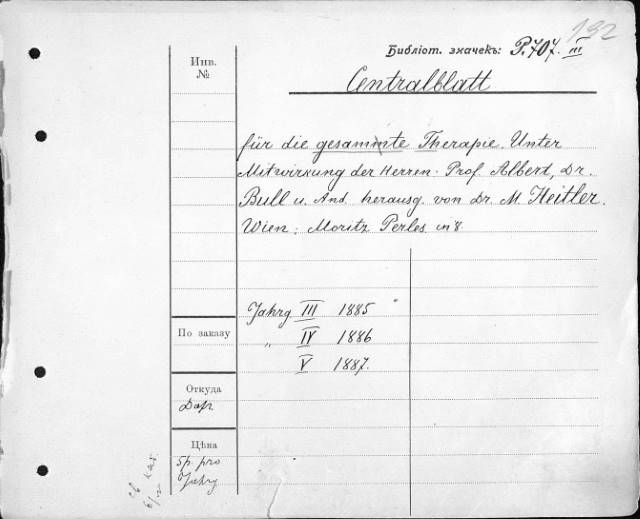 192
Библіот. значекъ: P.707. III
Инв.
№
Centralblatt
für die gesammte Therapie. Unter
Mitwirkung der Herren. Prof. Albert, Dr.
Bull u. And. herausg. von Dr. M. Heitler.
Wien: Moritz Perles. in 8.
Jahrg III 1885 "
По заказу
„ IV 1886
V 1887.
Откуда
Дар
Цѣна
5 р. pro
Jahrg